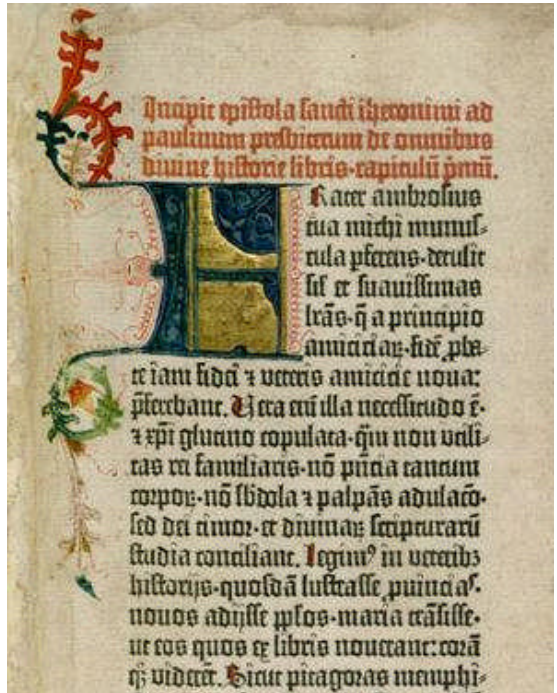 Incipit epistola sancti iheronimi ad
paulinum presbiterum de omnibus
divine historie libris·capitulū p̄mū.
FRater ambrosius
tua michi munus-
cula p̄ferens·detulit
sil' et suauissimas
lrās·q̄ a principio
amiciciaꝝ·fidē ꝓba-
te iam fidei ⁊ veteris amicicie noua:
p̄ferebant. Vera eni illa necessitudo ē·
⁊ xp̄i glutino copulata·q̄m non vtili-
tas rei familiaris·nō p̄ncia tantum
corpoꝝ·nō sb̄dola ⁊ palpās adulacō·
sed dei timor·et diuinaꝝ scripturarū
studia conciliant. Legimꝰ in veteribꝫ
historijs·quosdā lustrasse ꝓuincias·
nouos adijsse pp̄los·maria trāsisse·
ut eos quos ex libris nouerant: corā
qꝫ viderēt. Sicut pitagoras memphi-